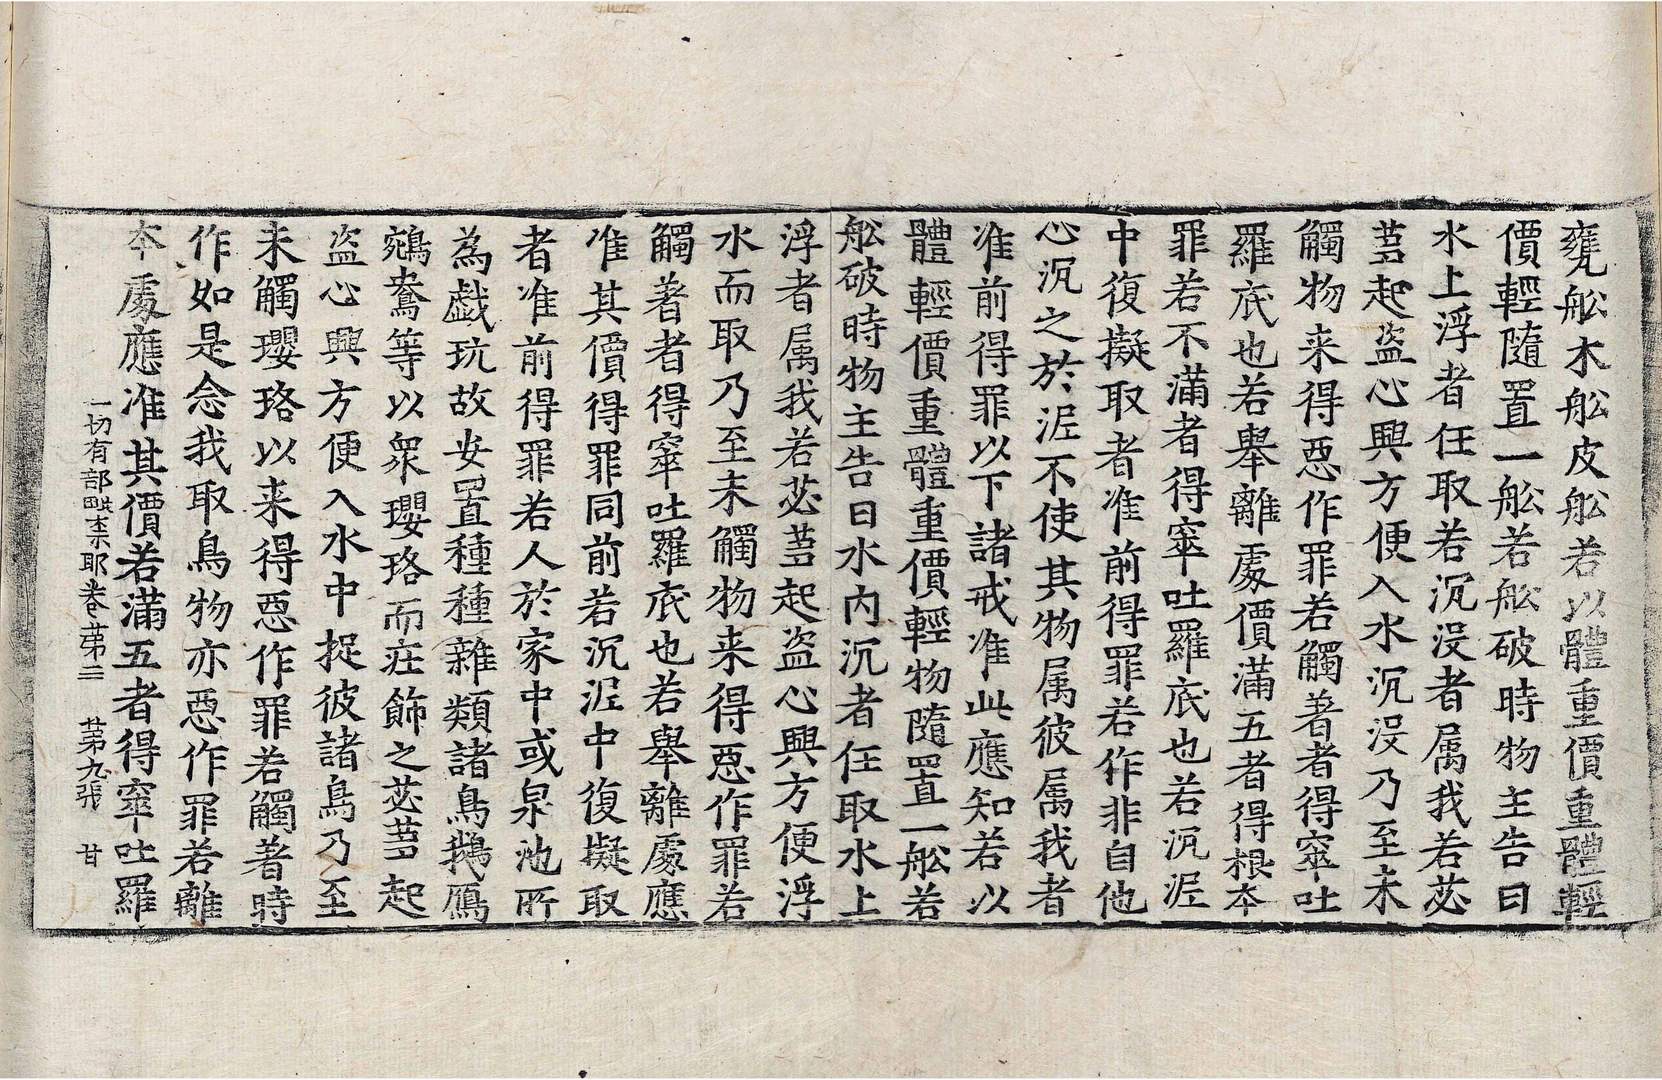 甕舩木舩皮舩若以體重價重體輕
價輕隨置一舩若舩破時物主告曰
水上浮者任取若沉没者属我若苾
蒭起盗心興方便入水沉没乃至未
觸物来得惡作罪若觸著者得窣吐
羅底也若舉離處價滿五者得根本
罪若不滿者得窣吐羅底也若沉泥
中復擬取者准前得罪若作非自他
心沉之於泥不使其物属彼属我者
准前得罪以下諸戒准此應知若以
體輕價重體重價輕物隨置一舩若
舩破時物主告曰水内沉者任取水上
浮者属我若苾蒭起盗心興方便浮
水而取乃至未觸物来得惡作罪若
觸著者得窣吐羅底也若舉離處應
准其價得罪同前若沉泥中復擬取
者准前得罪若人於家中或泉池所
為戯玩故安置種種雜類諸鳥鵝鴈
鴛鴦等以衆瓔珞而莊飾之苾蒭起
盗心興方便入水中捉彼諸鳥乃至
未觸瓔珞以来得惡作罪若觸著時
作如是念我取鳥物亦惡作罪若離
本處應准其價若滿五者得窣吐羅
一切有部毗柰耶卷第三 苐九張 甘